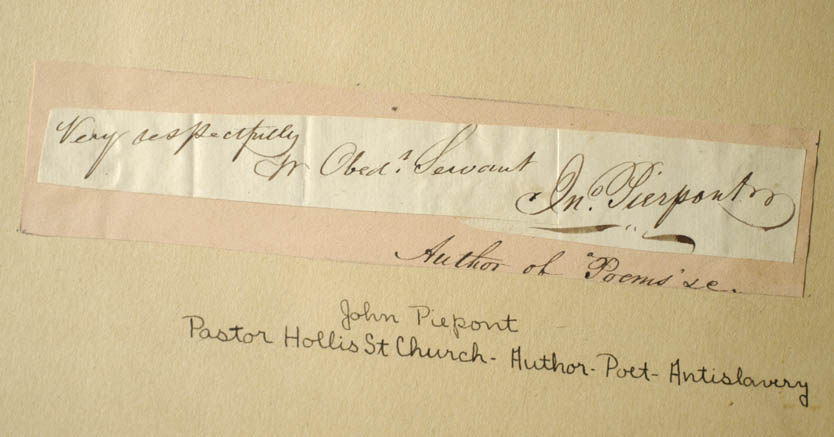 Very respectfully
Yr Obedt. Servant
Jno. Pierpont
Author of "Poems" &c.
John Piepont
Pastor Hollis St Church - Author - Poet - Antislavery